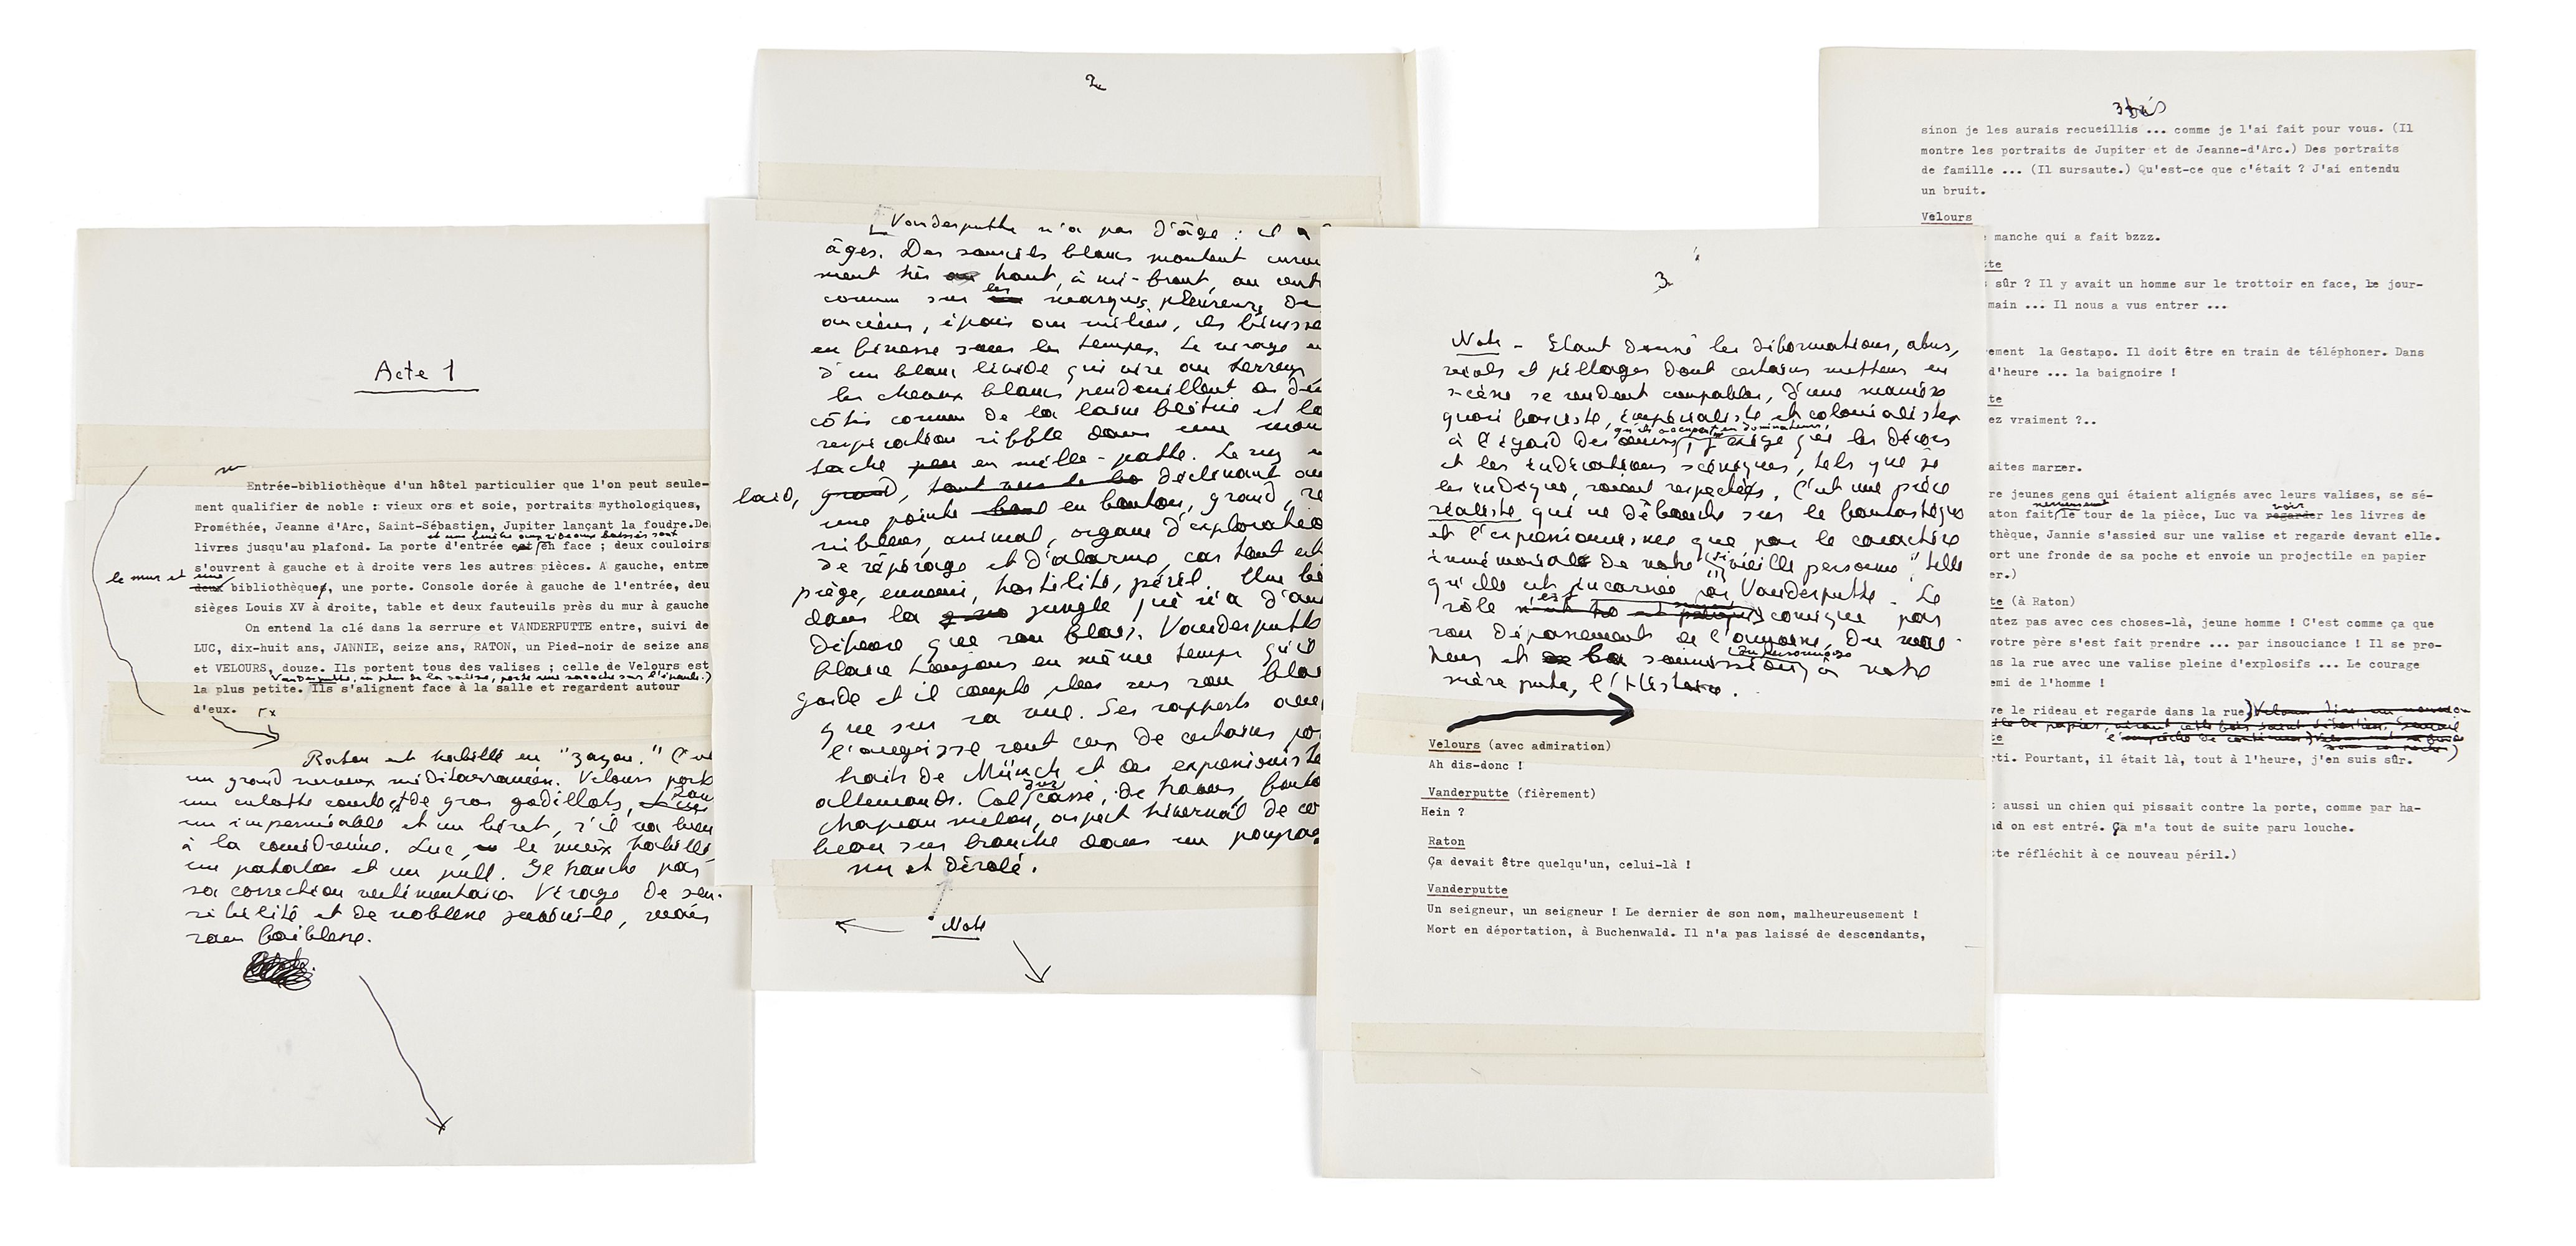 Acte 1
Entrée-bibliothèque d'un hôtel particulier que l'on peut seule-
ment qualifier de noble : vieux ors et soie, portraits mythologiques,
Prométhée, Jeanne d'Arc, Saint-Sébastien, Jupiter lançant la foudre.De
et une fenêtre aux rideaux baissés sont
livres jusqu'au plafond. La porte d'entrée est en face ; deux couloirs
s'ouvrent à gauche et à droite vers les autres pièces. A gauche, entre
le mur et une
deux bibliothèques, une porte. Console dorée à gauche de l'entrée, deu
sièges Louis XV à droite, table et deux fauteuils près du mur à gauche
On entend la clé dans la serrure et VANDERPUTTE entre, suivi de
LUC, dix-huit ans, JANNIE, seize ans, RATON, un Pied-noir de seize ans
et VELOURS, douze. Ils portent tous des valises ; celle de Velours est
Vanderputte, en plus de la valise, porte une sacoche sur l'épaule.)
la plus petite. Ils s'alignent face à la salle et regardent autour
d'eux.
Raton est habillé en "zazou." C'est
un grand nerveux méditerranéen. Velours porte
une culotte courte et de gros godillots,
un imperméable et un béret, s'il va bien
à la comédienne. Luc, le mieux habillé
un pantalon et un pull. Se tranche par
sa correction vestimentaire. Visage de sen-
sibilité et de noblesse juvénile, mais
sans faiblesse.
2
Vanderputte n'a pas d'âge : il a
âges. Des sourcils blancs montent curieu
ment très haut, à mi-front, au cent
comme sur les masques pleureurs de
anciens, épais au milieu, ils finisse
en finesse sous les tempes. Le visage e
d'un blanc livide qui vire au terreux
les cheveux blancs pendouillent des de
côtés comme de la laine flétrie et la
respiration siffle dans une mou
tache en mille-patte. Le nez e
laid, grand, tout vers le ba déclinant au
une pointe en bouton, grand, re
nifleur, animal, organe d'exploratio
de répérage et d'alarme, car tout est
piège, ennemi, hostilité, péril. Une bê
dans la jungle qui n'a d'au
défense que son flair. Vanderputte
flaire toujours en même temps qu'il
garde et il compte plus sur son flai
que sur sa vue. Ses rapports avec
l'angoisse sont ceux de certains por
traits de Münch et des expressionniste
allemands. Col dur cassé, de travers,
chapeau melon, aspect hivernal de cor
beau sur branche dans un paysage
nu et désolé.
Note
3
Note - Etant donné les déformations, abus,
viols et pillages dont certains metteurs en
scène se rendent coupables, d'une manière
quasi fasciste, impérialiste et colonialiste
qu'ils occupent en dominateurs,
à l'égard des œuvres, j'exige que les décors
et les indications scéniques, tels que je
les indique, soient respectés. C'est une pièce
réaliste qui ne débouche sur le fantastique
et l'expressionnisme que par le caractère
immémorial de notre "vieille personne" telle
qu'elle est incarnée par Vanderputte. Le
rôle est comique par
son dépassement de l'angoisse, du mal-
heur et la soumission à notre
mère pute, l'Histoire.
Velours (avec admiration)
Ah dis-donc !
Vanderputte (fièrement)
Hein ?
Raton
Ça devait être quelqu'un, celui-là !
Vanderputte
Un seigneur, un seigneur ! Le dernier de son nom, malheureusement !
Mort en déportation, à Buchenwald. Il n'a pas laissé de descendants,
3 bis
sinon je les aurais recueillis ... comme je l'ai fait pour vous. (Il
montre les portraits de Jupiter et de Jeanne-d'Arc.) Des portraits
de famille ... (Il sursaute.) Qu'est-ce que c'était ? J'ai entendu
un bruit.
Velours
manche qui a fait bzzz.
te
sûr ? Il y avait un homme sur le trottoir en face, le jour-
main ... Il nous a vus entrer ...
ement la Gestapo. Il doit être en train de téléphoner. Dans
d'heure ... la baignoire !
te
ez vraiment ?..
aites marrer.
re jeunes gens qui étaient alignés avec leurs valises, se sé-
nerveusement voir
aton fait le tour de la pièce, Luc va regarder les livres de
thèque, Jannie s'assied sur une valise et regarde devant elle.
ort une fronde de sa poche et envoie un projectile en papier
er.)
te (à Raton)
ntez pas avec ces choses-là, jeune homme ! C'est comme ça que
votre père s'est fait prendre ... par insouciance ! Il se pro-
ns la rue avec une valise pleine d'explosifs ... Le courage
emi de l'homme !
ve le rideau et regarde dans la rue)
te
rti. Pourtant, il était là, tout à l'heure, j'en suis sûr.
aussi un chien qui pissait contre la porte, comme par ha-
nd on est entré. Ça m'a tout de suite paru louche.
te réfléchit à ce nouveau péril.)